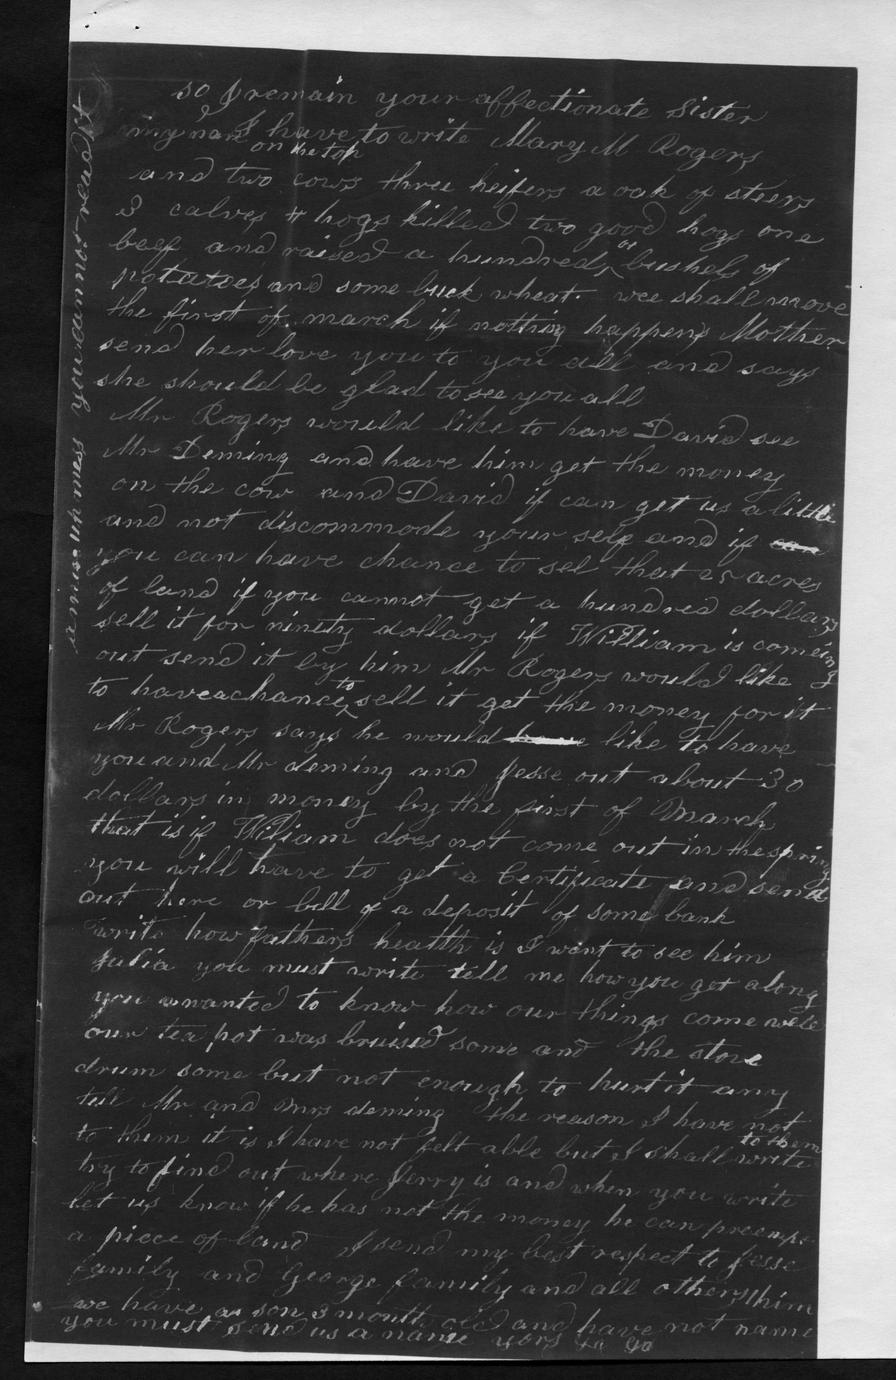 so I remain your affectionate Sister
my name I have to write Mary M Rogers
on the top
and two cows three heifers a oak of steers
3 calves 4 hogs killed two good hogs one
beef and raised a hundreds or bushels of
potatoes and some buck wheat. wee shall move
the first of march if nothing happens Mother
send her love you to you all and says
she should be glad to see you all
Mr Rogers would like to have David see
Mr Deming and have him get the money
on the cow and David if can get us a little
and not discommode your self and if
you can have chance to sel that 25 acres
of land if you cannot get a hundred dollars
sell it for ninity dollars if William is comeing
out send it by him Mr Rogers would like
to have a chance to sell it get the money for it
Mr Rogers says he would have like to have
you and Mr deming and Jesse out about 30
dollars in money by the first of March
that is if William does not come out in the spring
you will have to get a Certificate and send
out here or bill of a deposit of some bank
write how fathers health is I want to see him
Julia you must write tell me how you get along
you wanted to know how our things come wele
our tea pot was bruised some and the stove
drum some but not enough to hurt it any
tell Mr and Mrs deming the reason I have not
to them it is I have not felt able but I shall write to them
try to find out where Jerry is and when you write
let us know if he has not the money he can preempt
a piece of land I send my best respect to Jesse
family and George family and all others
we have a son 3 month old and have not name
you must send us a name yors
a mess you can not read it